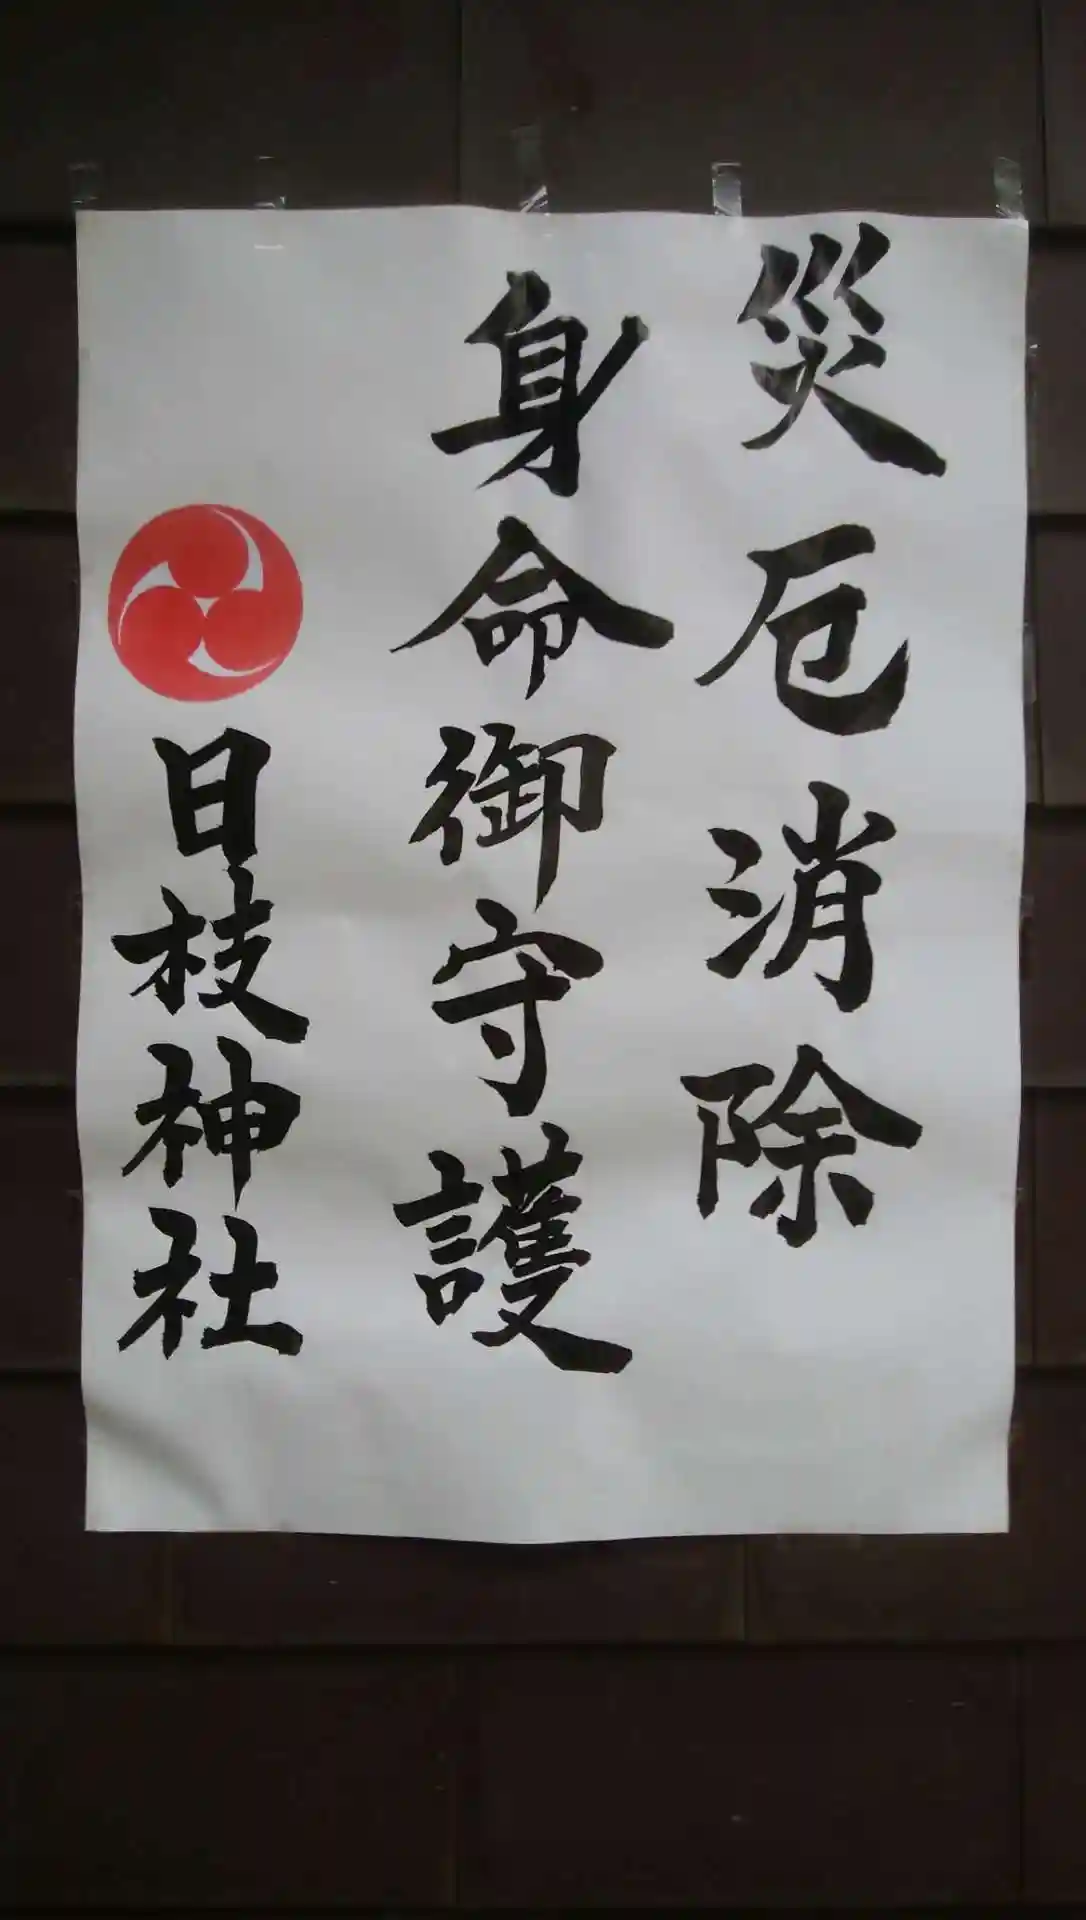 災厄消除
身命御守護
日枝神社